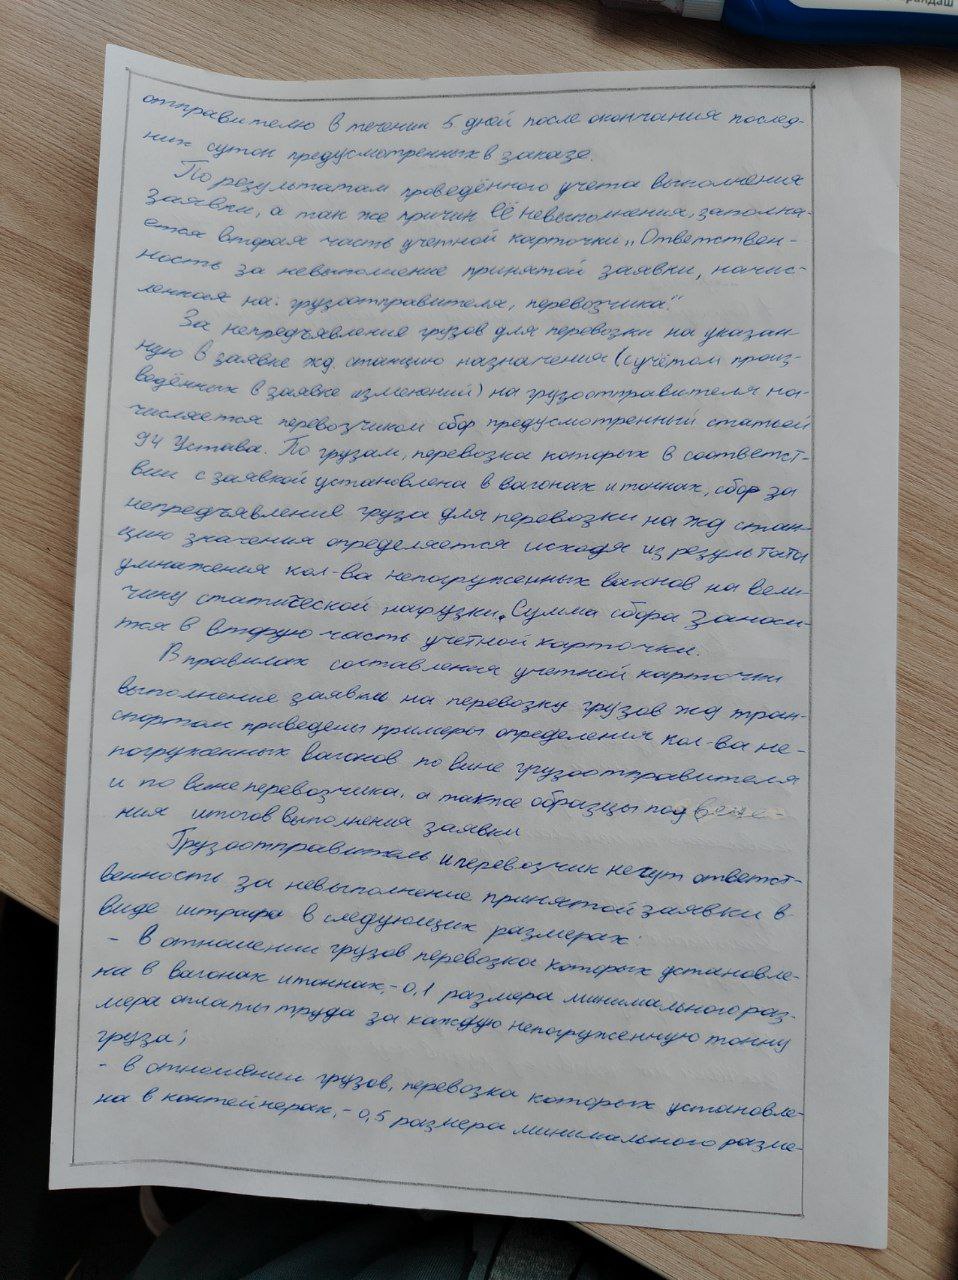 карандаш
отправителю в течении 5 дней после окончания послед-
них суток предусмотренных в заказе.
По результатам проведённого учета выполнения
заявки, а так же причин её невыполнения, заполня-
ется вторая часть учетной карточки „Ответствен-
ность за невыполнение принятой заявки, начис-
ленная на: грузоотправителя, перевозчика."
За непредъявление грузов для перевозки на указан-
ную в заявке жд. станцию назначения (с учётом произ-
ведённых в заявке изменений) на грузоотправителя на-
числяется перевозчиком сбор предусмотренный статьей
94 Устава. По грузам, перевозка которых в соответст-
вии с заявкой установлена в вагонах и тоннах, сбор за
непредъявление груза для перевозки на жд стан-
цию значения определяется исходя из результата
умнажения кол-ва непогруженных вагнов на вели-
чину статической нагрузки. Сумма сбора заноси-
тся в вторую часть учетной карточки.
В правилах составления учетной карточки
выполнение заявки на перевозку грузов жд тран-
спортом приведены примеры определения кол-ва не-
погруженных вагонов по вине грузоотправителя
и по вине перевозчика, а также образцы подведе-
ния итогов выполнения заявки
Грузоотправитель и перевозчик несут ответст-
венность за невыполнение принятой заявки в
виде штрафа в следующих размерах:
- в отношении грузов перевозка которых установле-
на в вагонах и тоннах,- 0,1 размера минимального раз-
мера оплаты труда за каждую непогруженную тонну
груза;
- в отношении грузов, перевозка которых установле-
на в контейнерах,- 0,5 размера минимального разме-